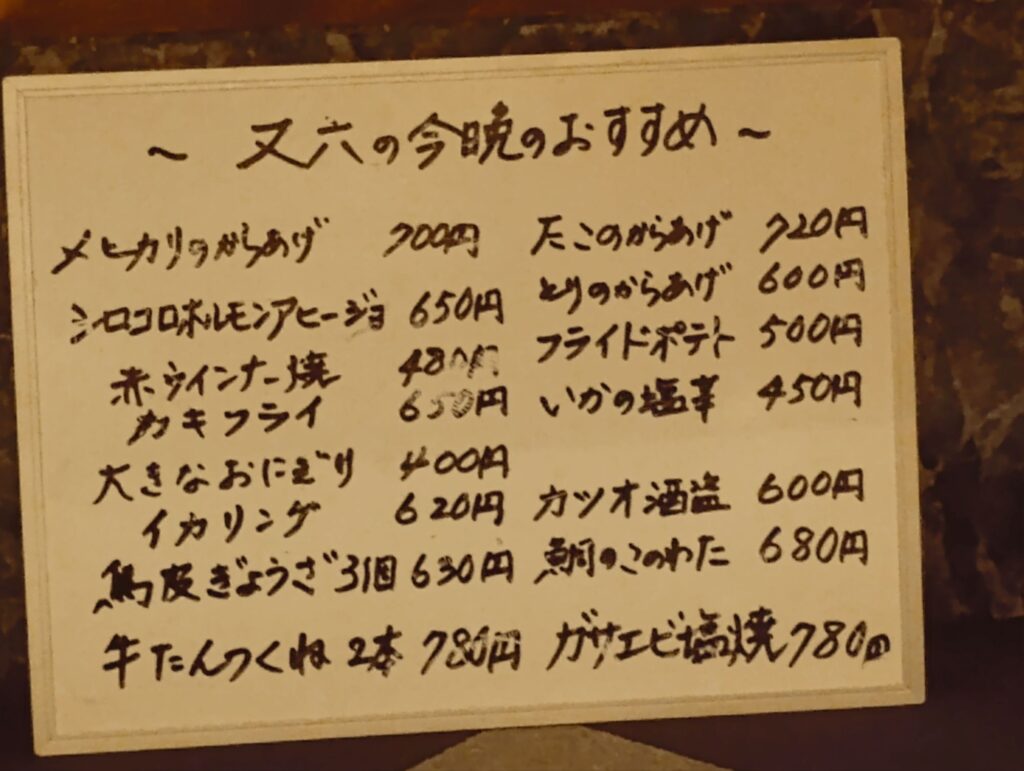 ～ 又六の今晩のおすすめ ～
メヒカリのからあげ 700円
シロコロホルモンアヒージョ 650円
赤ウインナー焼 480円
カキフライ 650円
大きなおにぎり 400円
イカリング 620円
鳥皮ぎょうざ3個 630円
牛たんつくね 2本 780円
たこのからあげ 720円
とりのからあげ 600円
フライドポテト 500円
いかの塩辛 450円
カツオ酒盗 600円
鯛のこのわた 680円
ガサエビ塩焼 780円